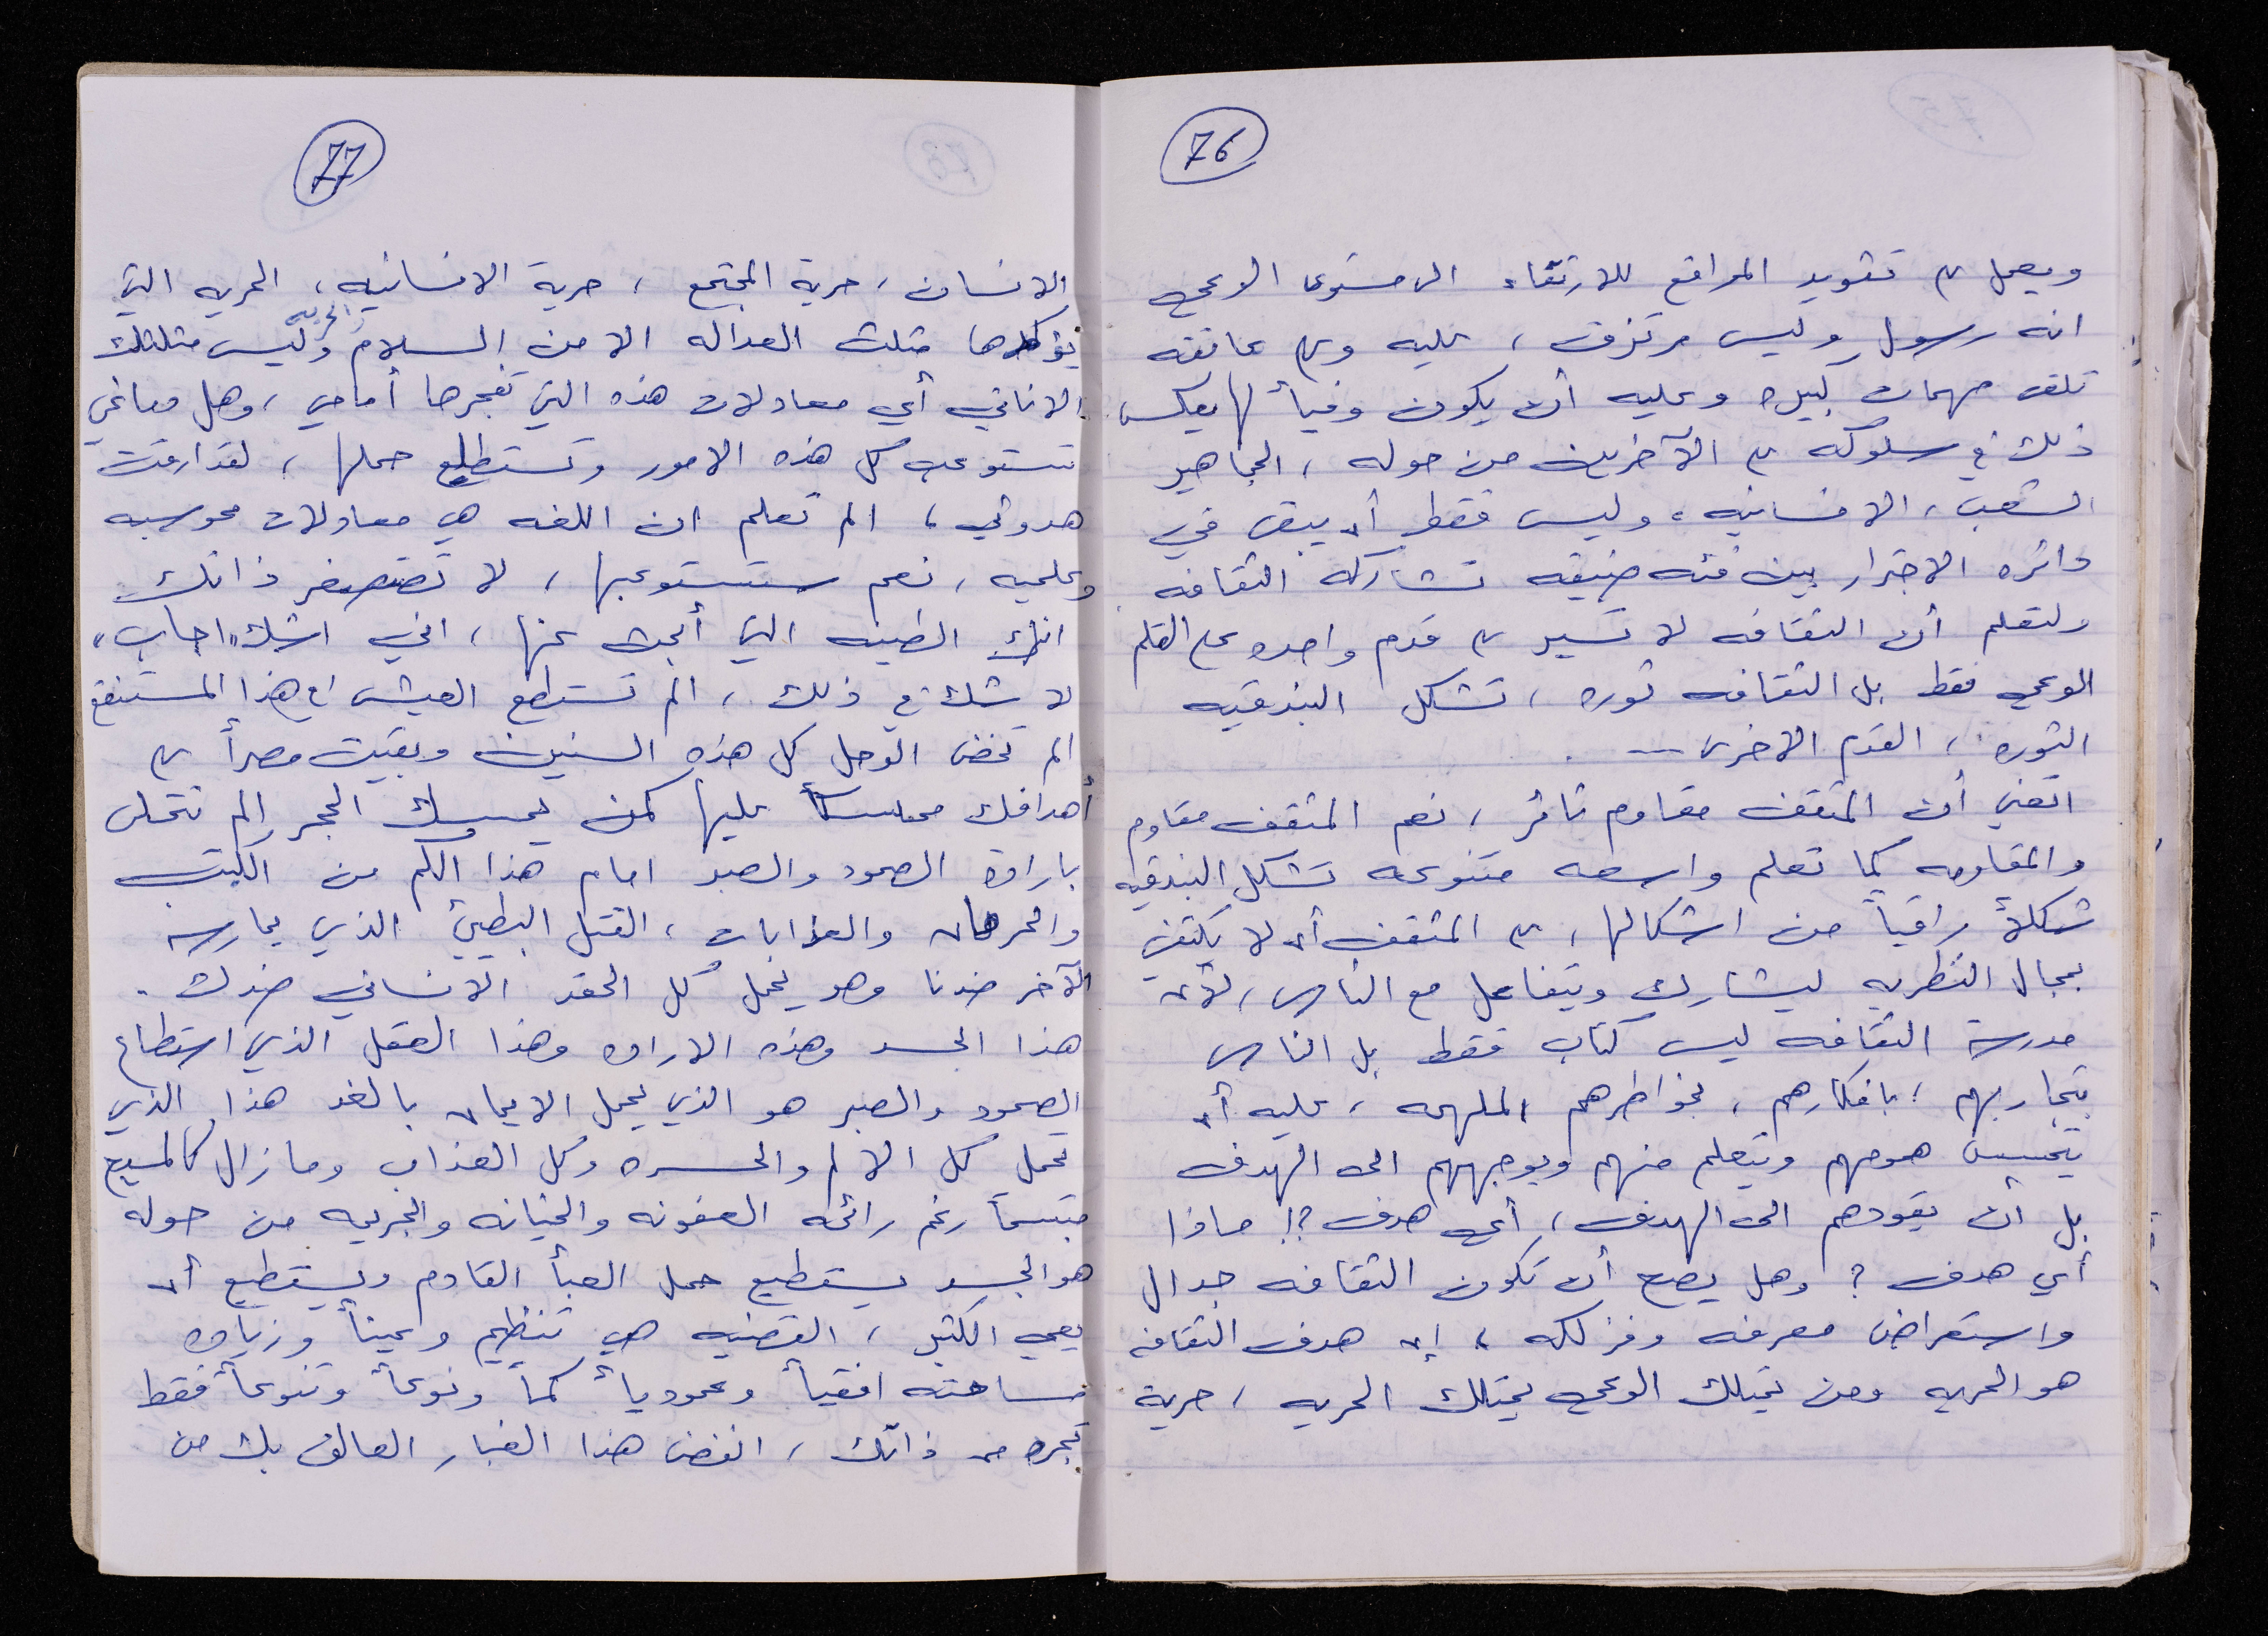 76
ويعمل على تقويد الواقع للارتقاء الى مستوى الوعي
انه رسول وليس مرتزق، عليه وعلى عاتقه
تلقى مهمات كبيره وعليه أن يكون وفياً لها يعكس
ذلك في سلوكه على الآخرين من حوله، الجماهير
الشعب، الانسانيه، وليس فقط أن يبقى في
دائره الاجترار بين فئه ضيقه تشاركه الثقافه
ولتعلم أن الثقافه لا تسير على قدم واحده على القلم
الوعي فقط بل الثقافه ثوره، تشكل البندقيه
الثوره، القدم الاخرى ...
اتعني أن المثقف مقاوم ثائر، نعم المثقف مقاوم
والمقاومه كما تعلم واسعه متنوعه تشكل البندقيه
شكلاً راقياً من اشكالها، على المثقف أن لا يكتفي
بمجال النظريه ليشارك ويتفاعل مع الناس، لأن
مدرسة الثقافه ليس كتاب فقط بل الناس
بتجاربهم، بافكارهم، بخواطرهم الملهمه، عليه أن
يتحسس همومهم ويتعلم منهم ويوجههم الى الهدف
بل أن يقودهم الى الهدف، أي هدف؟! ماذا
أي هدف؟ وهل يصح أن تكون الثقافه جدال
واستعراض معرفه وفزلكه، إن هدف الثقافه
هو الحريه ومن يمتلك الوعي يمتلك الحريه، حرية
77
الانسان، حرية المجتمع، حرية الانسانيه، الحريه التي
يؤكدها مثلث العداله الامن السلام والحريه وليس مثلثك
الاناني أي معادلات هذه التي تفجرها أمامي، وهل دماغي
تستوعب كل هذه الامور وتستطيع حملها، لقد ارقت
هدوئي، الم تعلم ان اللغه هي معادلات محوسبه
وعلميه، نعم ستستوعبها، لا تستصغر ذاتك
انك الطينه التي أبحث عنها، اني اشك "اجاب"
لا شك في ذلك، الم تستطع العيش في هذا المستنقع
الم تخض الوحل كل هذه السنين وبقيت مصراً على
أهدافك ممسكاً عليها كمن يمسك الحجر الم تتحلى
بارادة الصمود والصبر امام هذا الكم من الكبت
والحرمان والعذابات، القتل البطيئ الذي يمارسه
الآخر ضدنا وهو يحمل كل الحقد الانساني ضدك.
هذا الجسد وهذه الاراده وهذا العقل الذي استطاع
الصمود والصبر هو الذي يحمل الايمان بالغد هذا الذي
تحمل كل الالم والحسره وكل العذاب وما زال كالمسيح
مبتسماً رغم رائحه العفونه والخيانه والجريمه من حوله
هو الجسد يستطيع حمل العبأ القادم ويستطيع أن
يعي الكثير، القضيه هي تنظيم وعينا وزياده
مساحته افقياً وعمودياً كماً ونوعاً وتنوعاً فقط
تجره من ذاتك، انفض هذا الغبار العالق بك من